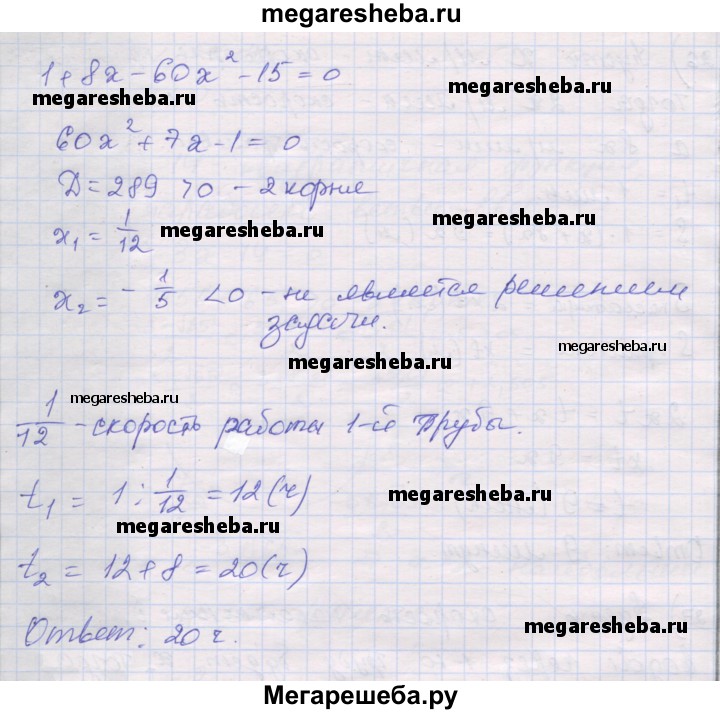 megaresheba.ru
1 + 8x - 60x² - 15 = 0
megaresheba.ru
60x² + 7x - 1 = 0
D = 289 > 0 - 2 корня
x₁ = 1/12 megaresheba.ru
megaresheba.ru
x₂ = - 1/5 < 0 - не является решением
задачи.
megaresheba.ru
megaresheba.ru
megaresheba.ru
1/12 - скорость работы 1-й трубы.
t₁ = 1 : 1/12 = 12 (ч)
megaresheba.ru
megaresheba.ru
t₂ = 12 + 8 = 20 (ч)
Ответ: 20 ч.
megaresheba.ru
Мегарешеба.ру